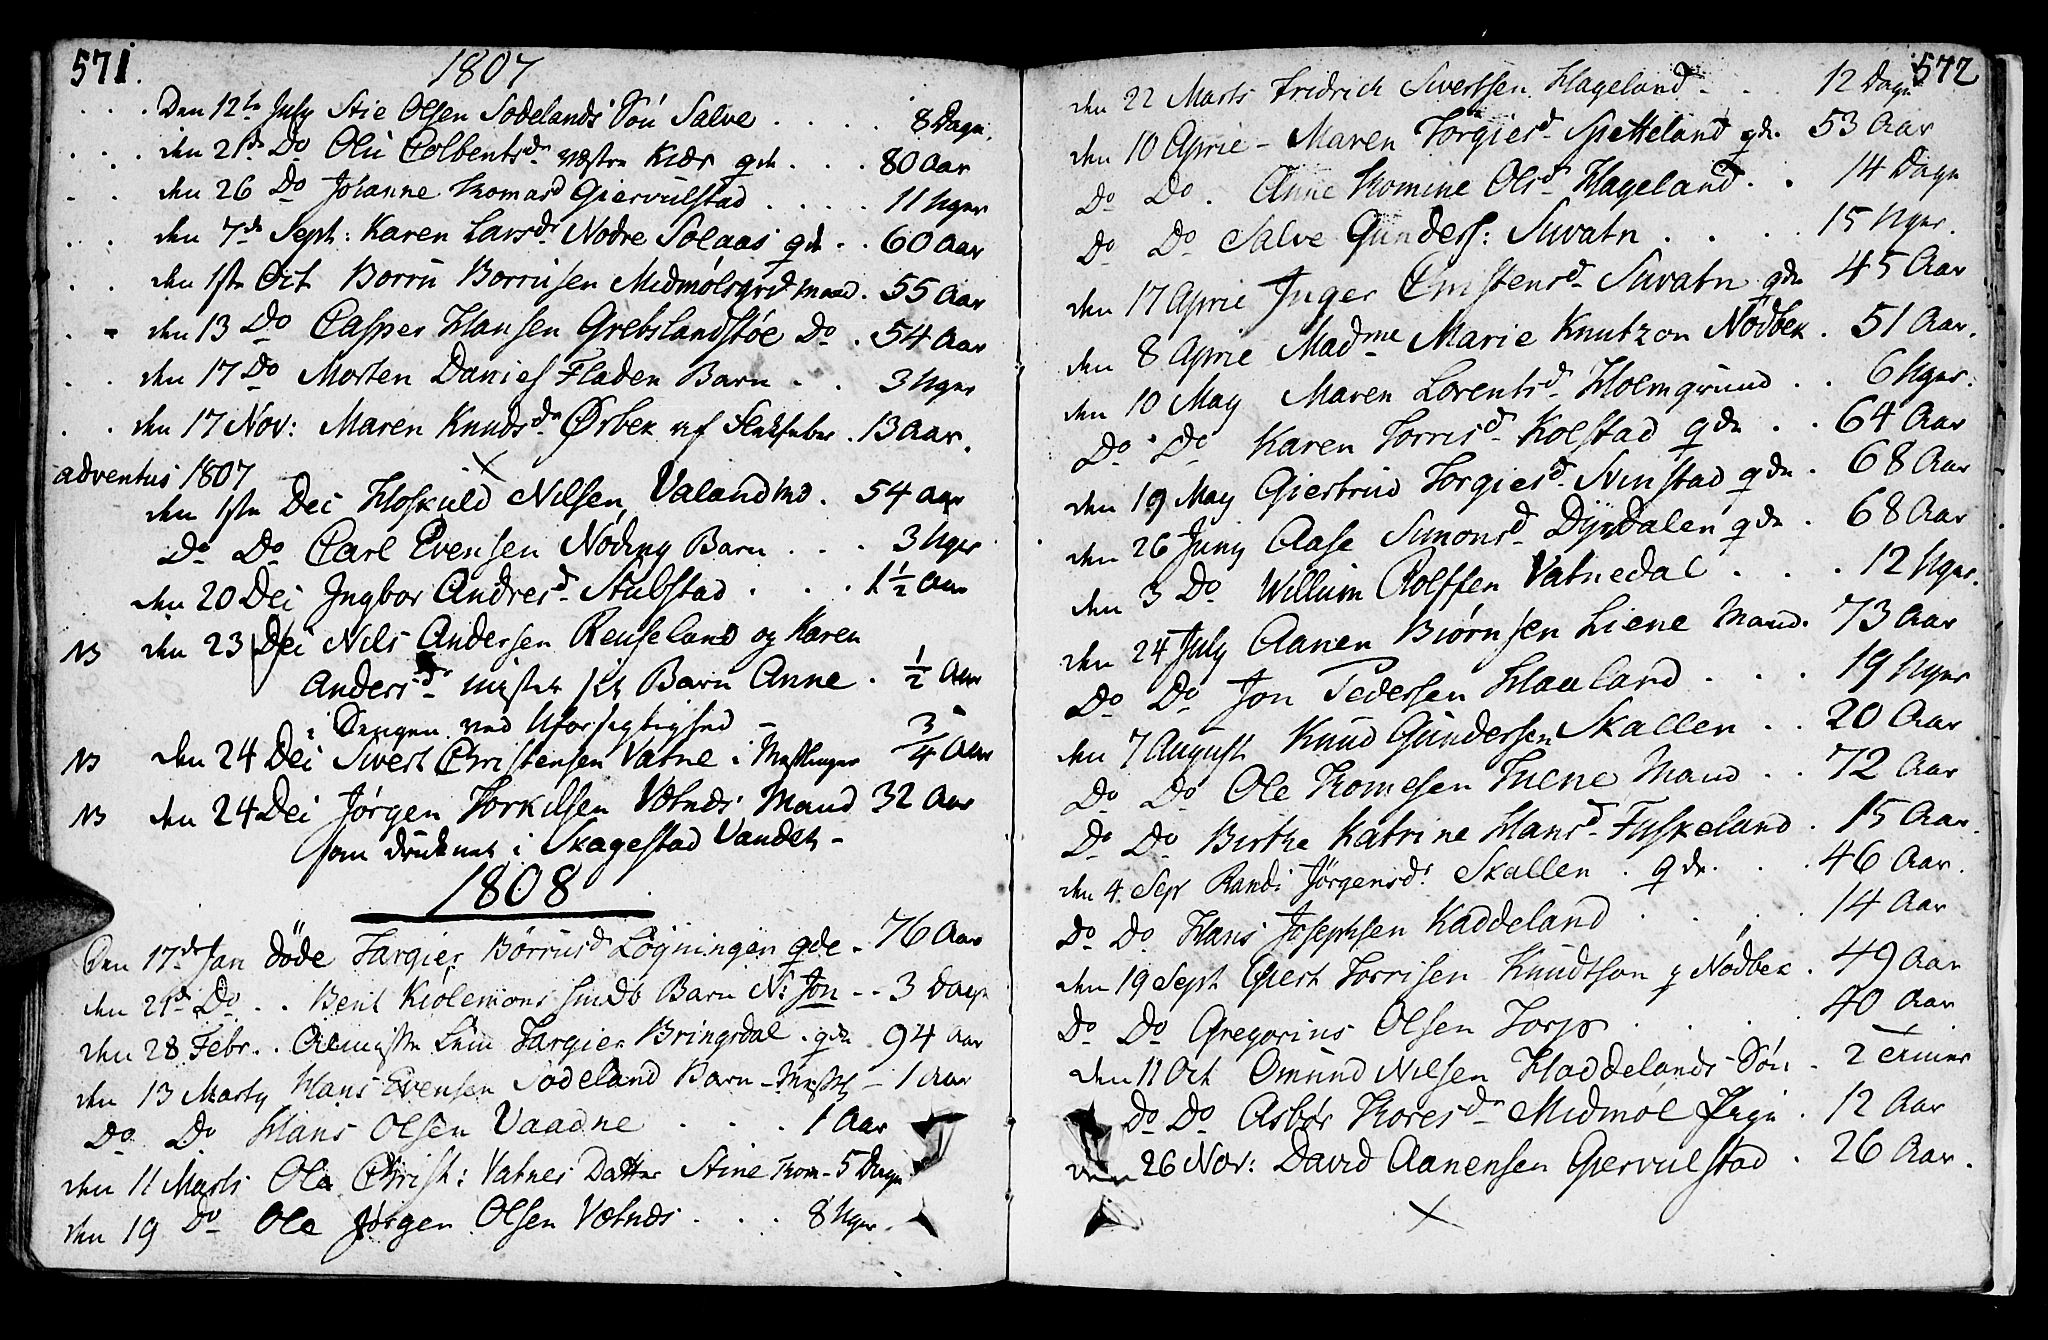 571.
1807
Den 12te July Stie Olsen Sodelands Søn Salve 8 Dage.
den 21de Do Oli Colbentsdr Væstre Kiær gde 80 Aar
den 26 Do Johanne Thomasd Giervulstad 11 Uger
den 7de Sept: Karen Larsdr Nodre Solaas gde 60 Aar
den 1ste Oct Borru Borrusen Midmølsgrd Mand. 55 Aar
den 13 Do Casper Hansen Grebslandstøe Do 54 Aar
den 17 Do Morten Daniels Fladen Barn 3 Uger
den 17 Nov: Maren Knudsdr Ørbek af 13 Aar.
adventus 1807
den 1ste Dei Hoskuld Nilsen Valand Md. 54 Aar
Do Do Carl Evensen Noding Barn 3 Uger
den 20 Dei Ingbor Andresd. Stubstad 1 1/2 Aar
NB den 23 Dei Nils Andersen Reuseland og Karen
Andersd. mistet sit Barn Anne 1/2 Aar
i Sengen ved Uforsigtighed
NB den 24 Dei Sivert Christensen Vatne i Meslinger 3/4 Aar
NB den 24 Dei Jørgen Torkilsen Vatnes Mand 32 Aar
som druknet i Skagestad Vandet
1808
Den 17d Jan døde Targier Børrusd Løgningen gde 76 Aar
den 21d Do Berit Kiølemons Barn N: Jon 3 Dage
den 28 Febr. Almisse Lem Targier Bringsdal gde 94 Aar
den 13 Marty Hans Evensen Sodeland Barn 1 Aar
Do Do Hans Olsen Vaadne 1 Aar
den 11 Marts Ole Christ: Vatnes Datter Stine Thom 5 Dage
den 19 Do Ole Jørgen Olsen Vatnes 8 Uger.
572
den 22 Marts Fridrich Sivertsen Hageland 12 Dage
den 10 Aprie Maren Torgiersd. Spetteland gde. 53 Aar
Do Do. Anne Thomine Olsd. Hageland 14 Dage
Do Do Salve Gunders: Suvatn 15 Uger.
den 17 Aprie Inger Cristensd. Suvatn gde 45 Aar
den 8 Aprie Madme Marie Knutzon Nodbek. 51 Aar.
den 10 May Maren Lorentsd. Holmgrund 6 Uger.
Do Do Karen Torrisd. Kolstad gde 64 Aar
den 19 May Giertrud Torgiersd. Nustad gde. 68 Aar
den 26 Juny Aase Simonsd. Dyrdalen gde. 68 Aar
den 3 Do Willum Rolffsen Vatnedal 12 Uger.
den 24 July Aanen Biørnsen Liene Mand. 73 Aar
Do Do Jon Pedersen Haaland 19 Uger
den 7 August Knud Gundersen Skallen 20 Aar
Do Do Ole Thomesen Tuene Mand 72 Aar
Do Do Birthe Katrine Hansd. Fuskeland. 15 Aar.
den 4. Sept Randi Jørgensdr Skallen. gde. 46 Aar.
Do Do Hans Josephsen Kaddeland 14 Aar
den 19 Sept Giert Torrisen Knudtson p Nodbek. 49 Aar
Do Do Gregorius Olsen Torp 40 Aar
den 11 Oct Omund Nilsen Haddelands Søn 2 Timer
Do Do Asbør Thoresdr Midmøl Pige. 12 Aar
den 26 Nov: David Aanensen Giervulstad. 26 Aar.